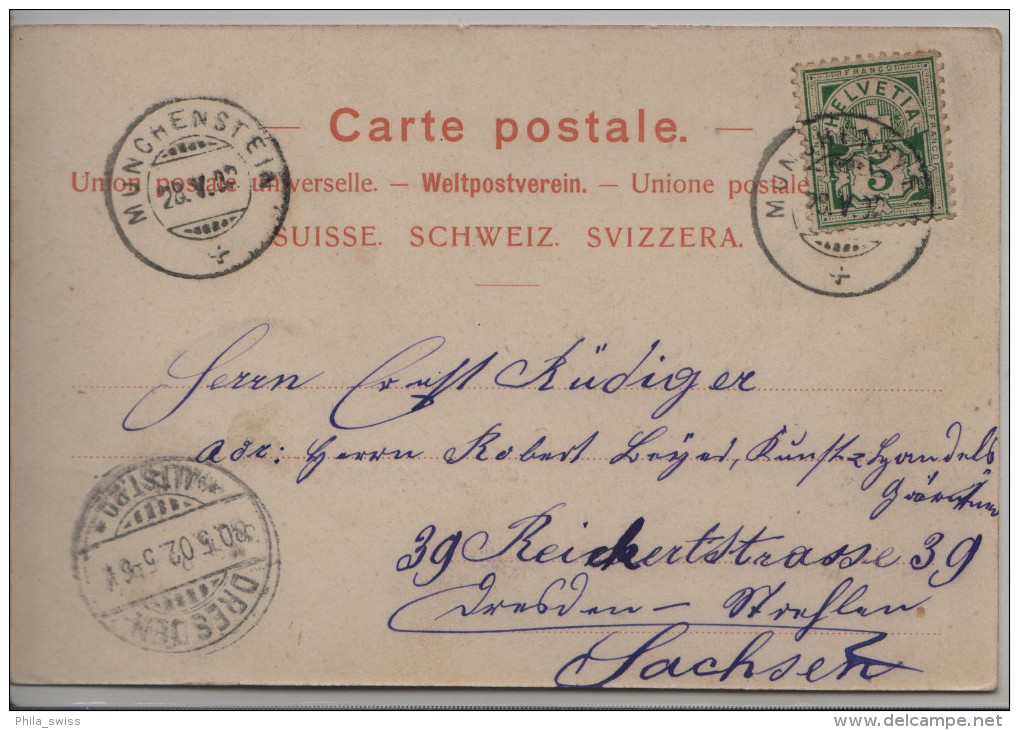 FRANCO
HELVETIA
5
Carte postale.
Union postale universelle. — Weltpostverein. — Unione postale
SUISSE. SCHWEIZ. SVIZZERA.
MÜNCHENSTEIN
28.V.02
MÜN
Herrn Ernst Rüdiger
adr: Herrn Robert Beyer, Kunst- & Handels
39 Reickertstrasse 39
Dresden - Strehlen
Sachsen
DRESDEN
30.5.02.5-6V
ALTST.
Phila_swiss
www.delcampe.net